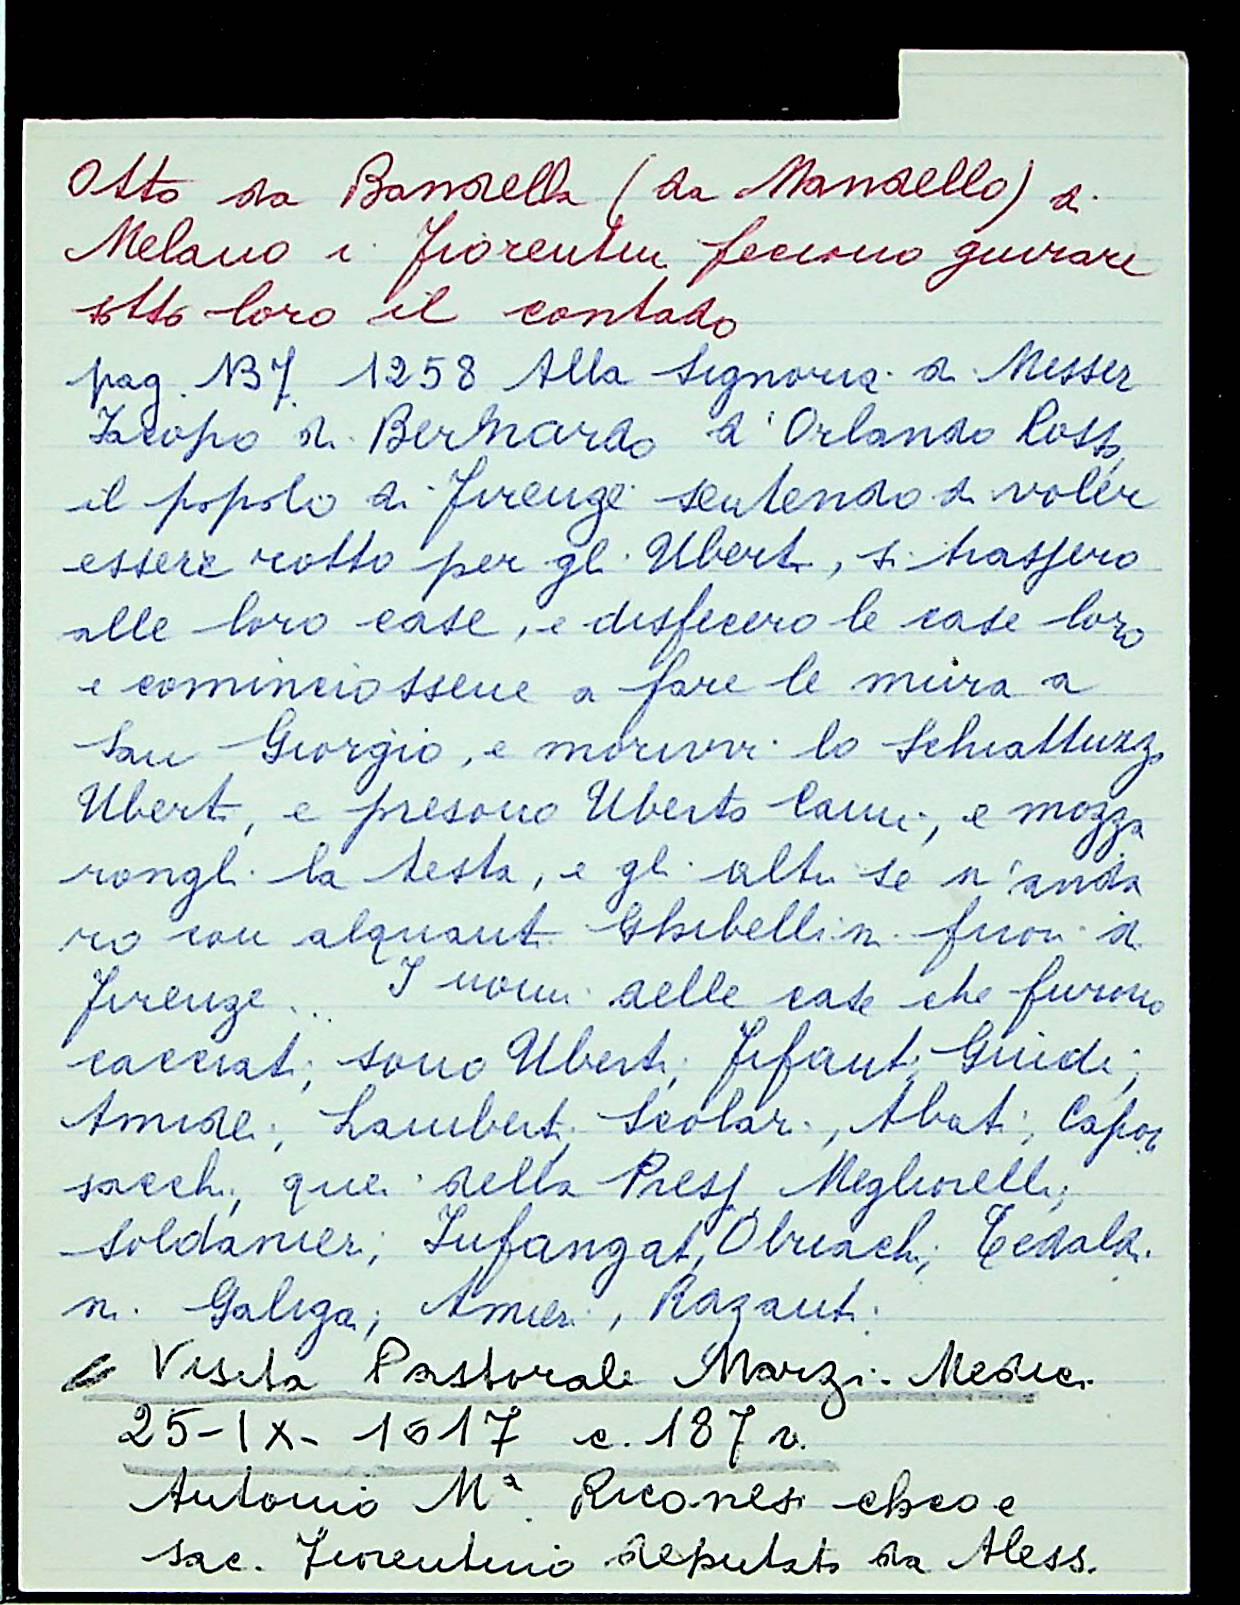 Otto da Bandella (da Mandello) di
Melano i Fiorentini feciono giurare
sotto loro il contado
pag. 137 1258 Alla Signoria di Messer
Iacopo di Bernardo d'Orlando Rossi,
il popolo di Firenze sentendo di voler
essere rotto per gli Uberti, si trassero
alle loro case, e disfecero le case loro
e cominciossene a fare le mura a
San Giorgio, e morivvi lo Schiattuzzo
Uberti, e presono Uberto Caini, e mozza
rongli la testa, e gli altri se n'anda
ro con alquanti Ghibellini fuori di
Firenze... I nomi delle case che furono
cacciati, sono Uberti, Fifanti, Guidi,
Amidei, Lamberti, Scolari, Abati, Capon
sacchi, quei della Pressa, Megliorelli,
Soldanieri, Infangati, Obriachi, Tedaldi
ni Galigai, Amieri, Razanti.
Visita Pastorale Marzi-Medici
25-IX-1617 c. 187 v.
Antonio Mª Riconesi cherco e
sac. Fiorentino deputato da Aless.